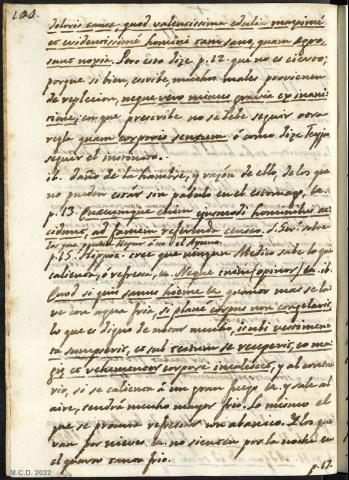 188.
doloris causa quod valentissima edulia maximè
et evidentissimè homini tam sano, quam ægro
sunt noxia. Pero esto dize p. 12. que no es cierto;
porque si bien, escribe, muchos males provienen
de replecion, neque vero minus gravia ex inani-
tione; en que prescribe no se debe seguir otra
regla quam corporis sensum ó como dize
seguir el instinto.
ib. daño de la hambre, y razon de ello, de los que
no pueden estar sin pabulo en el estomago, &c.
p. 13. Quæcumque etiam ejusmodi hominibus ac-
cidunt, ad famem referenda censeo. sobre
los que pueden llevar ó no el Ayuno.
p. 15. Hippoc. cree que ningun Medico sabe lo que
calienta, ó refresca, &c. Neque enim (opinor) &c. ib.
Quod si quis sanus hieme &c. quanto mas se la-
ve con agua fria, si planè corpus non congelaverit,
lo que es digno de notar mucho, ubi vestimen-
ta sumpserit, et sub tectum se receperit, eo ma-
gis et vehementius corpore incalescit, y al contra-
rio, si se calienta à un gran fuego &c. y sale al
aire, tendrá mucho mayor frio. Lo mismo el
que se procura refrescar con abanico. I los que
van por nieve &c. no sienten por la noche en
el quarto tanto frio.
p. 17.
M.C.D. 2022